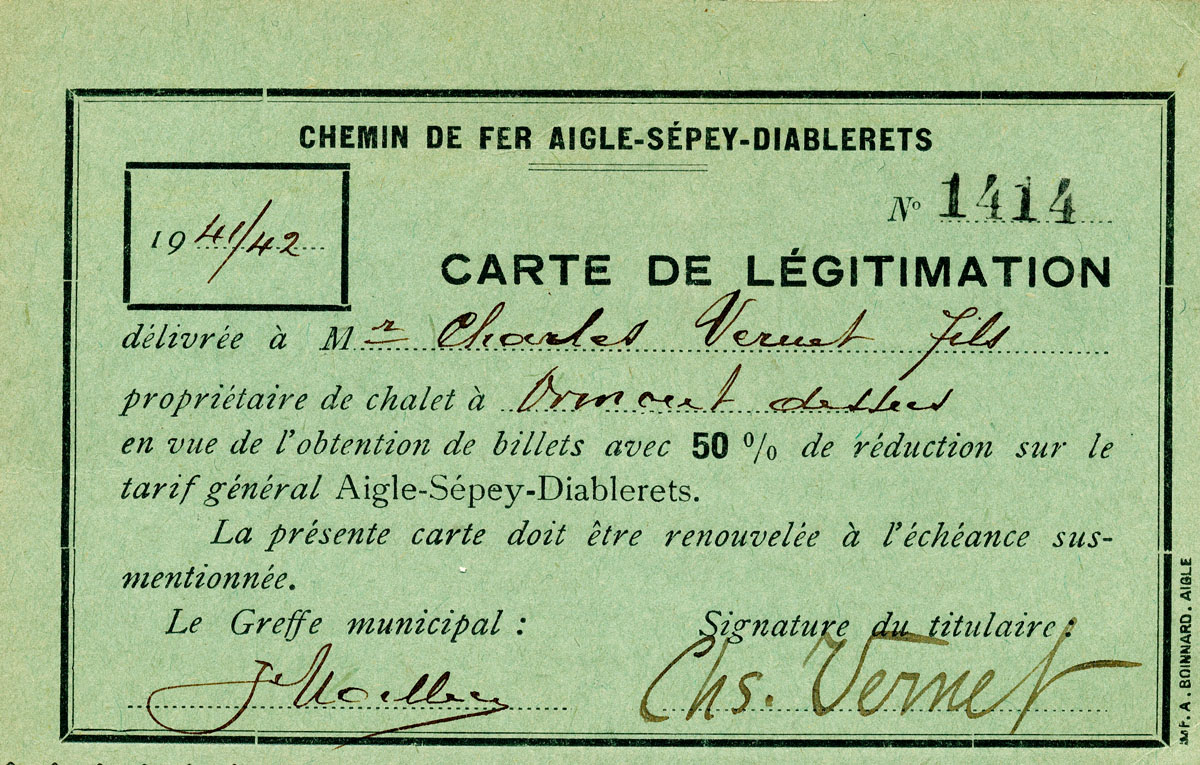 CHEMIN DE FER AIGLE-SÉPEY-DIABLERETS
Nº 1414
19 41/42
CARTE DE LÉGITIMATION
délivrée à Mr Charles Vernet fils
propriétaire de chalet à Ormont dessus
en vue de l'obtention de billets avec 50 % de réduction sur le
tarif général Aigle-Sépey-Diablerets.
La présente carte doit être renouvelée à l'échéance sus-
mentionnée.
Le Greffe municipal :
Signature du titulaire :
Chs. Vernet
IMP. A. BOINNARD. AIGLE